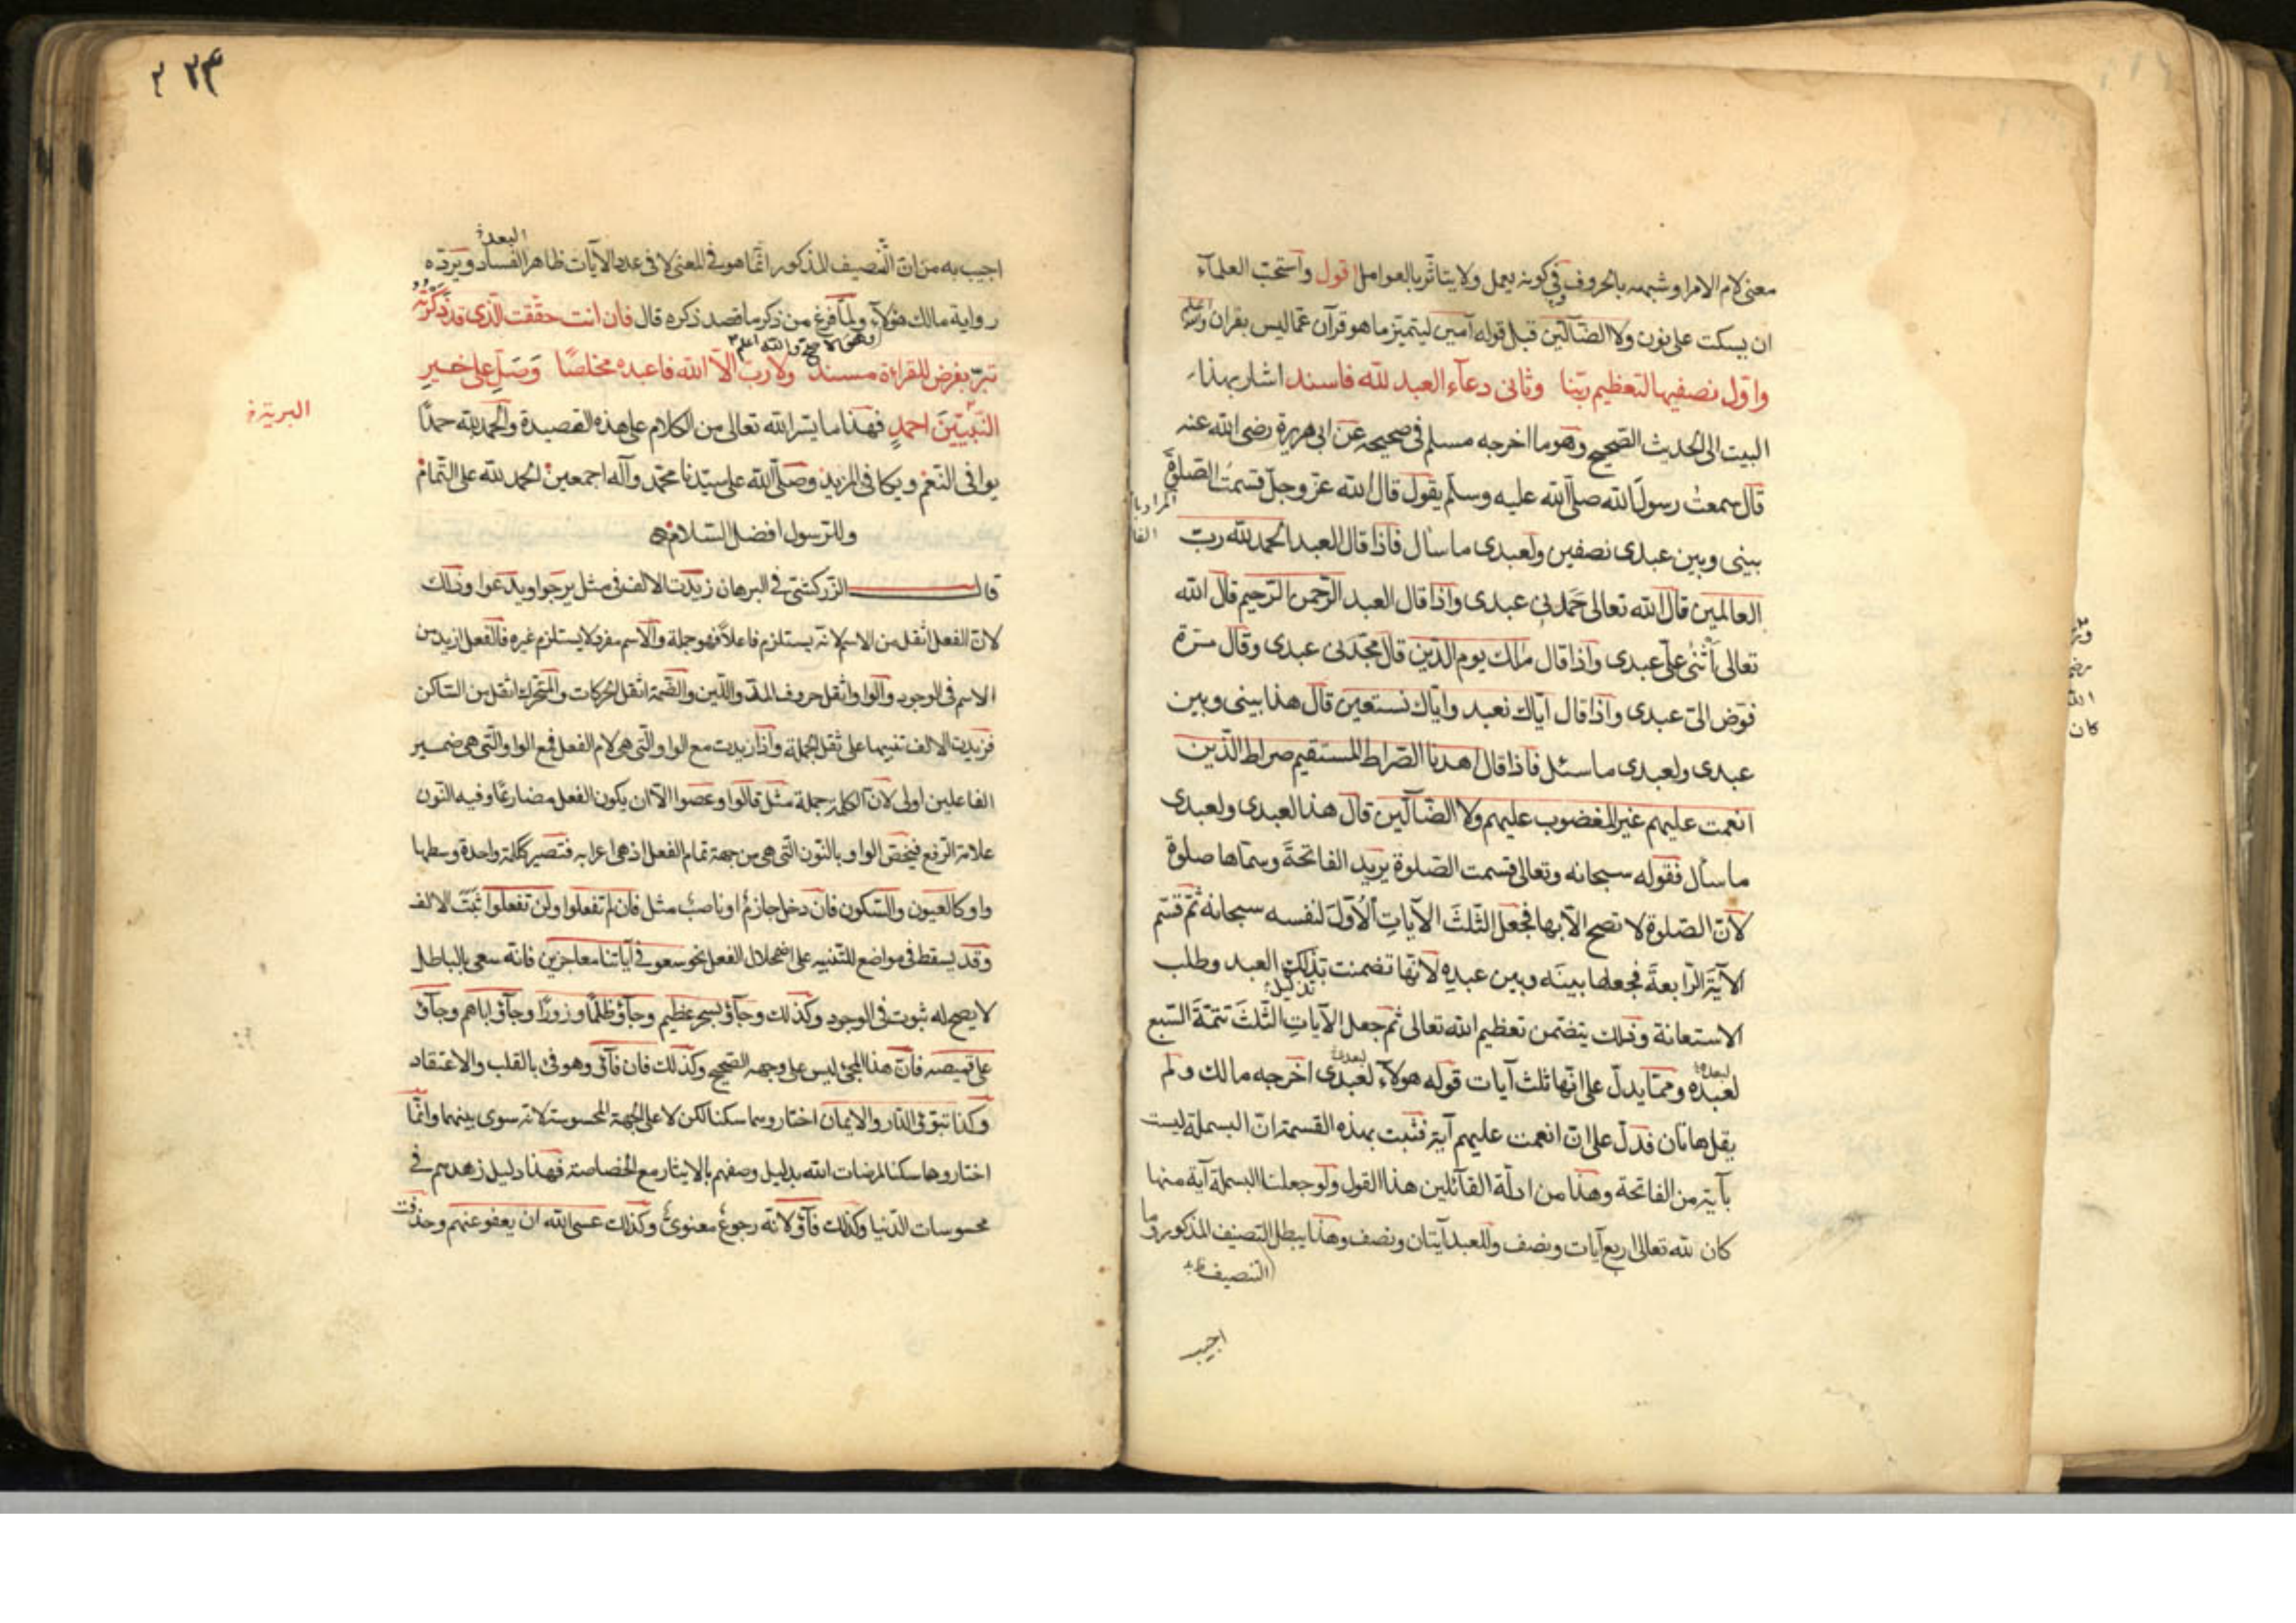 معنى لام الامر او شبهه بالحروف في كونه يعمل ولا يتاثر بالعوامل اقول واستحب العلمآء
ان يسكت على نون ولا الضآلين قبل قوله آمين ليتميز ما هو قرآن عما ليس بقران
واول نصفيها لتعظيم ربنا وثانى دعآء العبد لله فاسند اشار بهذا
البيت الى الحديث الصحيح وهو ما اخرجه مسلم فى صحيحه عن ابى هريرة رضى الله عنه
قال سمعت رسول الله صلى الله عليه وسلم يقول قال الله عز وجل قسمت الصلوة
المراد بها
الفا
بينى وبين عبدى نصفين ولعبدى ما سأل فاذا قال العبد الحمد لله رب
العالمين قال الله تعالى حمدنى عبدى واذا قال العبد الرحمن الرحيم قال الله
تعالى اثنى علىّ عبدى واذا قال مالك يوم الدين قال مجدنى عبدى وقال مرة
فوض الىّ عبدى واذا قال اياك نعبد واياك نستعين قال هذا بينى وبين
عبدى ولعبدى ما سئل فاذا قال اهدنا الصراط المستقيم صراط الذين
انعمت عليهم غير المغضوب عليهم ولا الضآلين قال هذا لعبدى ولعبدى
ما سأل فقوله سبحانه وتعالى قسمت الصلوة يريد الفاتحة وسماها صلوة
لان الصلوة لا تصح الا بها فجعل الثلث الآيات الاول لنفسه سبحانه ثم قسم
الآية الرابعة فجعلها بينه وبين عبده لانها تضمنت تذلل العبد وطلب
تذلل
الاستعانة وذلك يتضمن تعظيم الله تعالى ثم جعل الآيات الثلث تتمة السبع
لعبده ومما يدل على انها ثلث آيات قوله هولآء لعبدى اخرجه مالك ولم
يقل هاتان فدل على ان انعمت عليهم آية فثبت بهذه القسمة ان البسملة ليست
بآية من الفاتحة وهذا من ادلة القآئلين هذا القول ولو جعلنا البسملة آية منها
كان لله تعالى اربع آيات ونصف وللعبد آيتان ونصف وهذا يبطل التصنيف المذكور وما
التنصيف
اجيب
كان
٢٣٣
البعد
اجيب به من ان التنصيف المذكور انما هو فى المعنى لا فى عدد الآيات ظاهر الفساد ويرده
رواية مالك هؤلآء ولما فرغ من ذكر ما قصد ذكره قال فان انت حققت الذى قد ذكرته
وهو الاصح والله اعلم
تبرّ بفرض للقراءة مسند ولا رب الا الله فاعبده مخلصًا وصل على خير
البرية
النبيين احمد فهذا ما يسر الله تعالى من الكلام على هذه القصيدة والحمد لله حمدًا
يوافى النعم ويكافى المزيد وصلى الله على سيدنا محمد وآله اجمعين الحمد لله على التمام
وللرسول افضل السلام
قال الزركشى فى البرهان زيدت الالف فى مثل يرجوا ويدعوا وذلك
لان الفعل اثقل من الاسم لانه يستلزم فاعلًا فهو جملة والاسم مفرد لا يستلزم غيره فالفعل ازيد من
الاسم فى الوجود والواو اثقل حروف المد واللين والضمة اثقل الحركات والمتحرك اثقل من الساكن
فزيدت الالف تنبيها على ثقل الجملة واذا زيدت مع الواو التى هى لام الفعل فمع الواو التى هى ضمير
الفاعلين اولى لان الكلمة جملة مثل قالوا وعصوا الا ان يكون الفعل مضارعًا وفيه النون
علامة الرفع فيخص الواو بالنون التى هى من جهة تمام الفعل اذ هى اعرابه فتصير ككلمة واحدة وسطها
واو كالعيون والسكون فان دخل جازم او ناصب مثل فان لم تفعلوا ولن تفعلوا ثبت الالف
وقد يسقط فى مواضع للتنبيه على اضمحلال الفعل نحو سعو فى آياتنا معاجزين فانه سعى بالباطل
لا يصح له ثبوت فى الوجود وكذلك وجآؤ بسحر عظيم وجآؤ ظلمًا وزورًا وجآؤ اباهم وجآؤ
على قميصه فان هذا المجئ ليس على وجهه الصحيح وكذلك فان فآؤ وهو فئ بالقلب والاعتقاد
وكذا تبوؤ الدار والايمان اختاروهما سكنا لكن لا على الجهة المحسوسة لانه سوى بينهما وانما
اختاروها سكنا لمرضات الله بدليل وصفهم بالايثار مع الخصاصة فهذا دليل زهدهم فى
محسوسات الدنيا وكذلك فآؤ لانه رجوع معنوى وكذلك عسى الله ان يعفو عنهم وحذفت